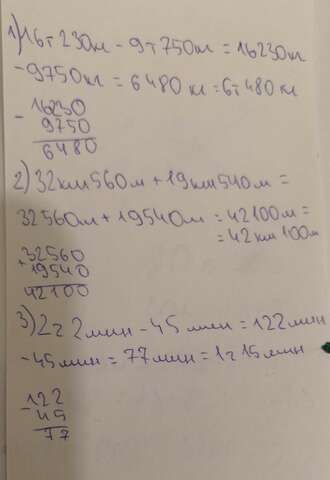 1) 16т 230кг - 9т 750кг = 16230кг
- 9750кг = 6480кг = 6т 480кг
- 16230
9750
6480
2) 32км 560м + 19км 540м =
32560м + 19540м = 42100м =
= 42км 100м
+ 32560
19540
42100
3) 2ч 2мин - 45мин = 122мин
- 45мин = 77мин = 1ч 15мин
- 122
45
77